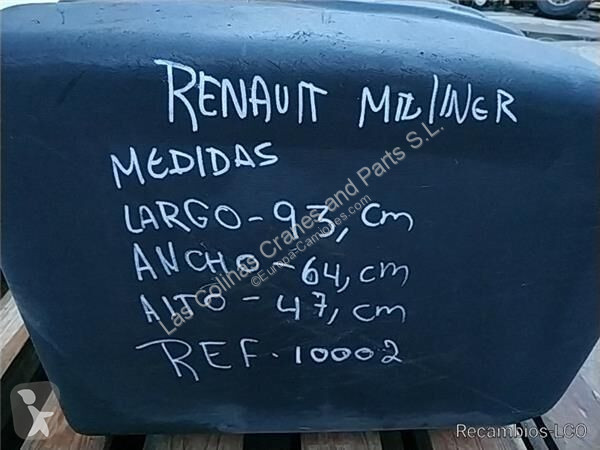 RENAULT MIL/INER
MEDIDAS
LARGO - 93, cm
ANCHO - 64, cm
ALTO - 47, cm
REF. 10002
Las Colinas Cranes and Parts S.L.
©Europa-Camiones.com
Recambios-LCO